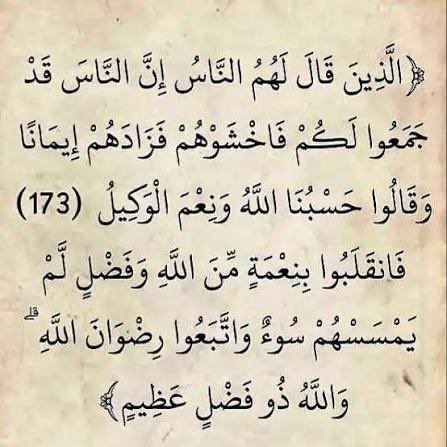 ﴿الَّذِينَ قَالَ لَهُمُ النَّاسُ إِنَّ النَّاسَ قَدْ
جَمَعُوا لَكُمْ فَاخْشَوْهُمْ فَزَادَهُمْ إِيمَانًا
وَقَالُوا حَسْبُنَا اللَّهُ وَنِعْمَ الْوَكِيلُ (173)
فَانقَلَبُوا بِنِعْمَةٍ مِّنَ اللَّهِ وَفَضْلٍ لَّمْ
يَمْسَسْهُمْ سُوءٌ وَاتَّبَعُوا رِضْوَانَ اللَّهِ ۗ
وَاللَّهُ ذُو فَضْلٍ عَظِيمٍ﴾